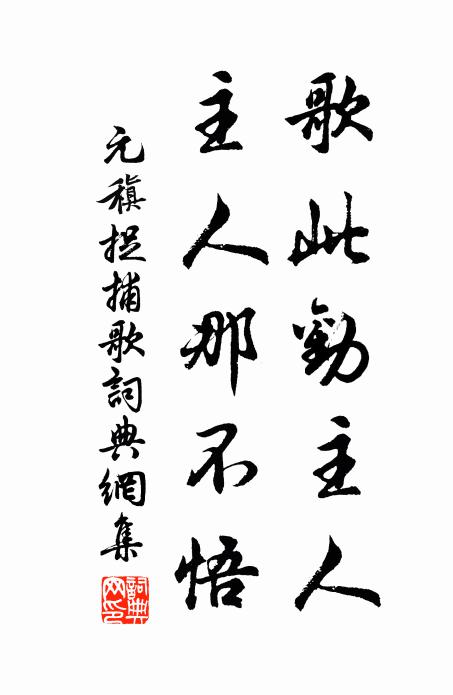 歌此勸主人
主人那不悟
元稹捉捕歌詞典網集
詞典网印